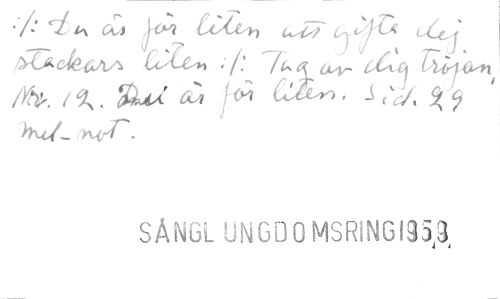 :/: Du är för liten att gifta dej
stackars liten :/: Tag av dig tröjan,
Nr. 12. Du är för liten. Sid. 29
mel-not.
SÅNGL UNGDOMSRING 1959